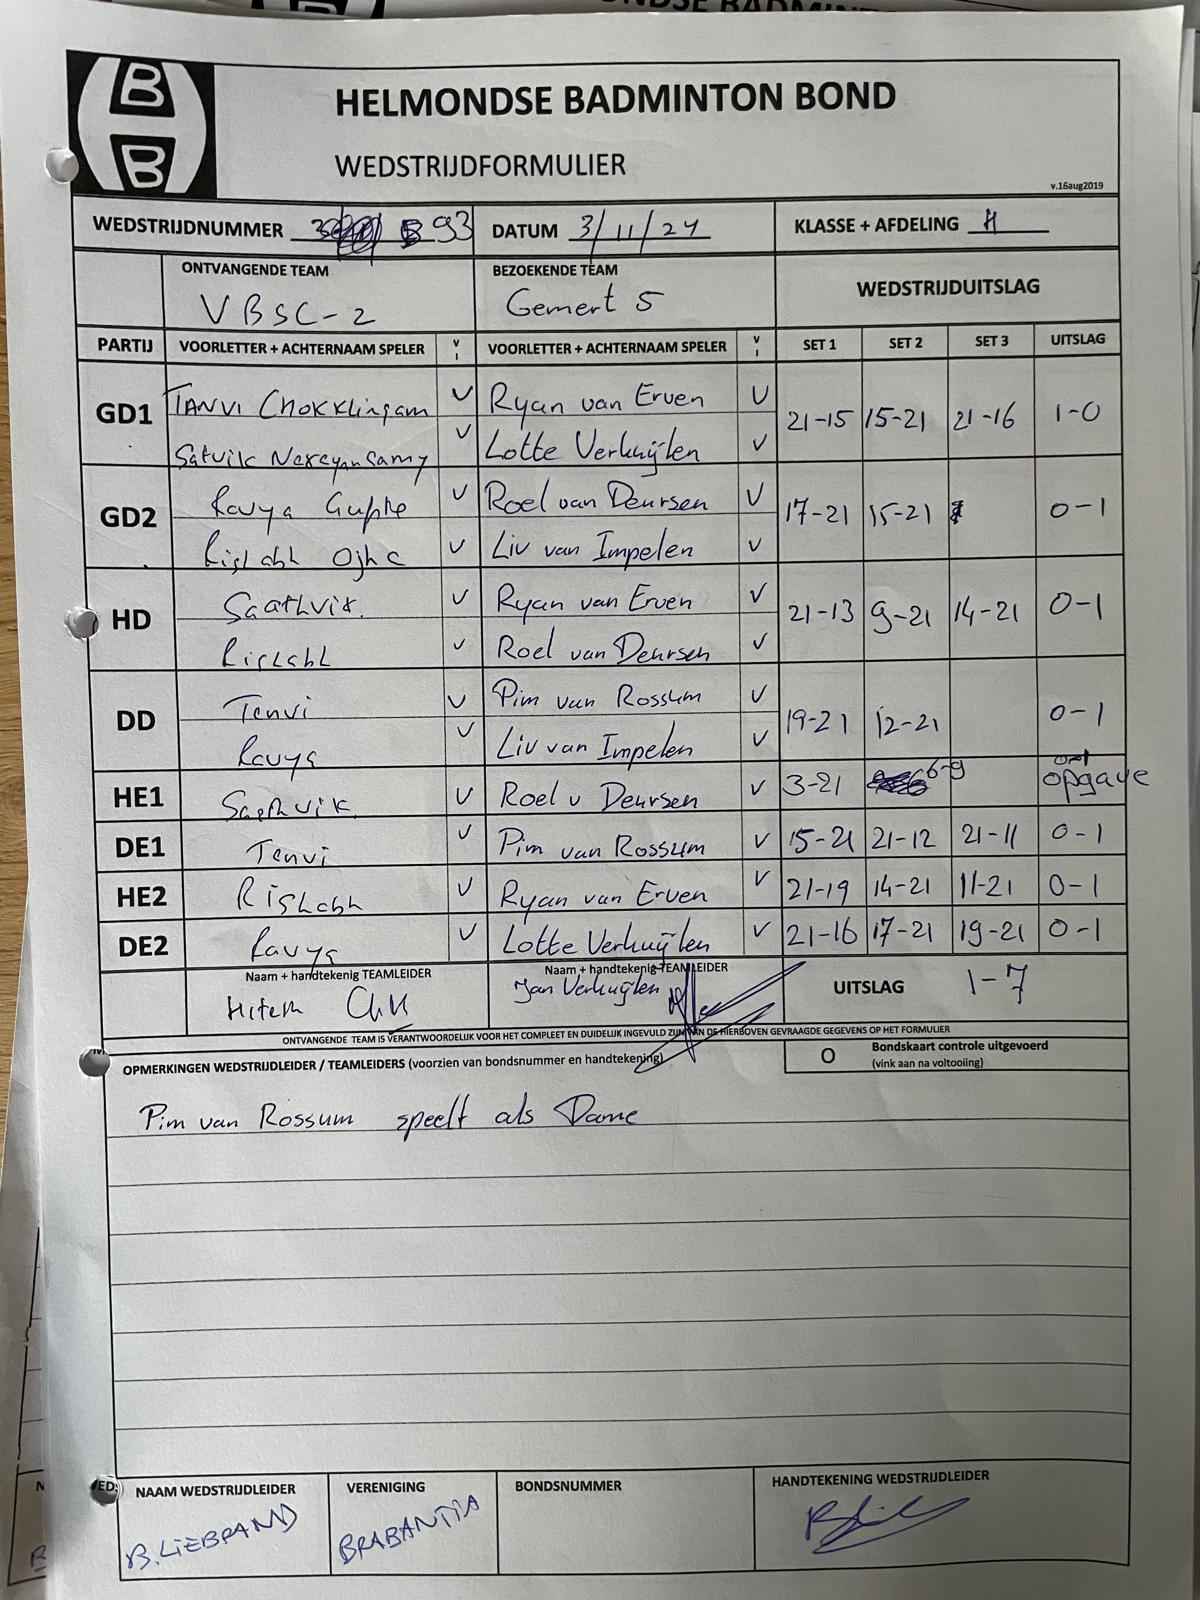 HELMONDSE BADMINTON BOND
WEDSTRIJDFORMULIER
v.16aug2019
WEDSTRIJDNUMMER 93 DATUM 3/11/24 KLASSE + AFDELING H
ONTVANGENDE TEAM BEZOEKENDE TEAM WEDSTRIJDUITSLAG
VBSC-2 Gemert 5
PARTIJ VOORLETTER + ACHTERNAAM SPELER V I VOORLETTER + ACHTERNAAM SPELER V I SET 1 SET 2 SET 3 UITSLAG
GD1 TANVI Chokklingam V Ryan van Erven V 21-15 15-21 21-16 1-0
Satvik Narayansamy V Lotte Verkuijlen V
GD2 Kavya Gupta V Roel van Deursen V 17-21 15-21 0-1
Rishabh Ojha V Liv van Impelen V
HD Saathvik. V Ryan van Erven V 21-13 9-21 14-21 0-1
Rishabh V Roel van Deursen V
DD Tanvi V Pim van Rossum V 19-21 12-21 0-1
Kavya V Liv van Impelen V
HE1 Saathvik V Roel v Deursen V 3-21 6-9 0-1 opgave
DE1 Tanvi V Pim van Rossum V 15-21 21-12 21-11 0-1
HE2 Rishabh V Ryan van Erven V 21-19 14-21 11-21 0-1
DE2 Kavya V Lotte Verkuijlen V 21-16 17-21 19-21 0-1
Naam + handtekenig TEAMLEIDER Naam + handtekenig TEAMLEIDER UITSLAG 1-7
Hitesh Jan Verkuijlen
ONTVANGENDE TEAM IS VERANTWOORDELIJK VOOR HET COMPLEET EN DUIDELIJK INGEVULD ZIJN VAN DE HIERBOVEN GEVRAAGDE GEGEVENS OP HET FORMULIER
OPMERKINGEN WEDSTRIJDLEIDER / TEAMLEIDERS (voorzien van bondsnummer en handtekening) O Bondskaart controle uitgevoerd
(vink aan na voltooiing)
Pim van Rossum speelt als Dame
NAAM WEDSTRIJDLEIDER VERENIGING BONDSNUMMER HANDTEKENING WEDSTRIJDLEIDER
B. LIEBRAND BRABANTIA